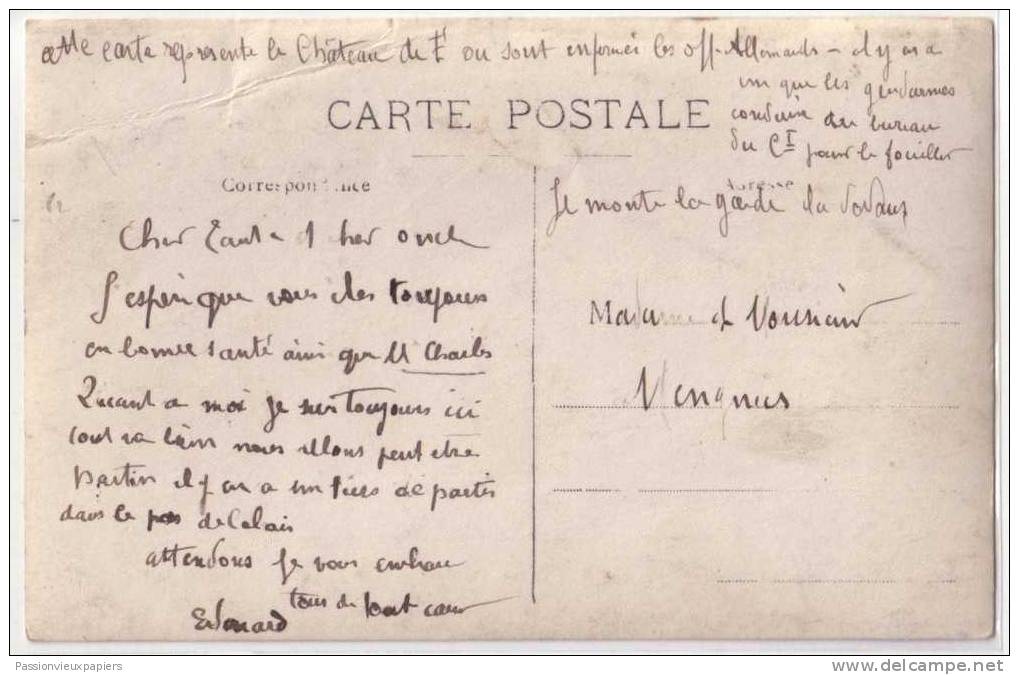 cette carte represente le Château du Ft ou sont enfermés les off. Allemands - il y en a
un que les gendarmes
conduire au bureau
du Ct pour le fouiller
CARTE POSTALE
Correspondance
Adresse
Je monte la garde la
Cher Tante et cher oncle
J'espère que vous êtes toujours
en bonne santé ainsi que M Charles
Quant a moi je suis toujours ici
tout va bien nous allons peut être
partir il y en a un tiers de partis
dans le pas de Calais
attendons je vous embrasse
tous de tout cœur
Edouard
Madame & Monsieur
Passionvieuxpapiers
delcampe.net